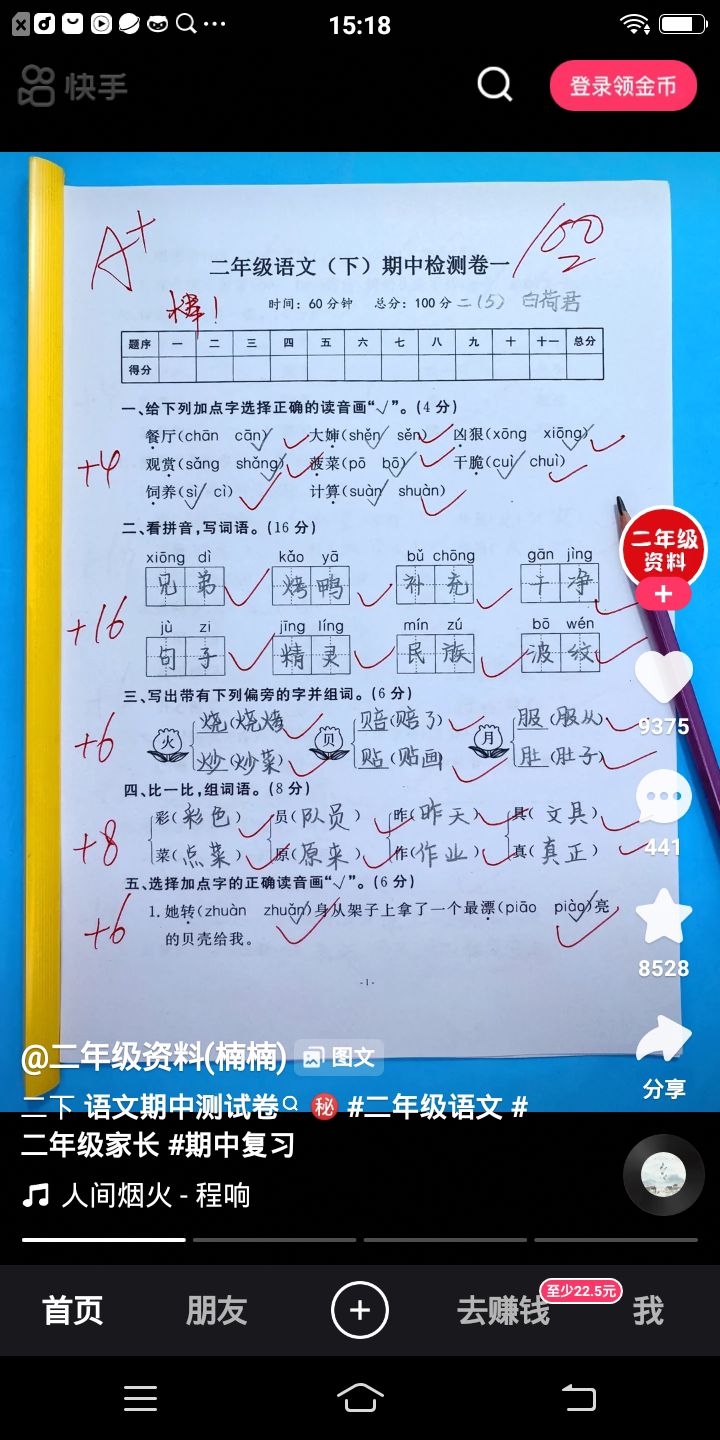 15:18
快手
登录领金币
A+
100
二年级语文（下）期中检测卷一
棒！
时间：60分钟 总分：100分 二（5） 白荷君
题序 一 二 三 四 五 六 七 八 九 十 十一 总分
得分
一、给下列加点字选择正确的读音画“√”。（4分）
餐厅（chān cān） 大婶（shěn sěn） 凶狠（xōng xiōng）
+4
观赏（sǎng shǎng） 菠菜（pō bō） 干脆（cuì chuì）
饲养（sì cì） 计算（suàn shuàn）
二、看拼音，写词语。（16分）
xiōng dì kǎo yā bǔ chōng gān jìng
兄弟 烤鸭 补充 干净
+16
jù zi jīng líng mín zú bō wén
句子 精灵 民族 波纹
三、写出带有下列偏旁的字并组词。（6分）
+6
火 烧（烧烤） 贝 赔（赔了） 月 服（服从）
炒（炒菜） 贴（贴画） 肚（肚子）
四、比一比，组词语。（8分）
彩（彩色） 员（队员） 昨（昨天） 具（文具）
+8
菜（点菜） 原（原来） 作（作业） 真（真正）
五、选择加点字的正确读音画“√”。（6分）
+6
1. 她转（zhuàn zhuǎn）身从架子上拿了一个最漂（piāo piào）亮
的贝壳给我。
-1-
二年级
资料
9375
441
8528
分享
@二年级资料(楠楠) 图文
二下 语文期中测试卷 秘 #二年级语文 #
二年级家长 #期中复习
人间烟火 - 程响
首页 朋友 去赚钱 至少22.5元 我